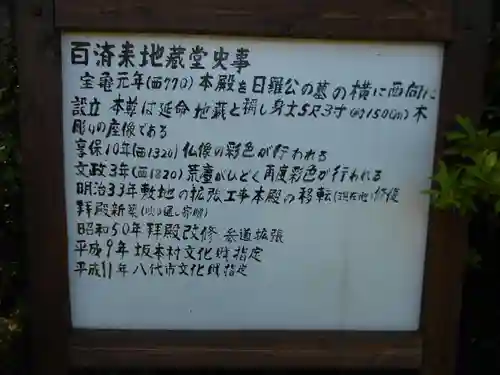 百済来地蔵堂史事
宝亀元年(西770)本殿を日羅公の墓の横に西向に
設立 本尊は延命地蔵と称し身丈5尺3寸(約150cm)木
彫りの座像である
享保10年(西1320)仏像の彩色が行われる
文政3年(西1820)荒廃がひどく再度彩色が行われる
明治33年敷地の拡張工事本殿の移転(現在地)修復
拝殿新築
昭和50年拝殿改修 参道拡張
平成9年 坂本村文化財指定
平成11年 八代市文化財指定